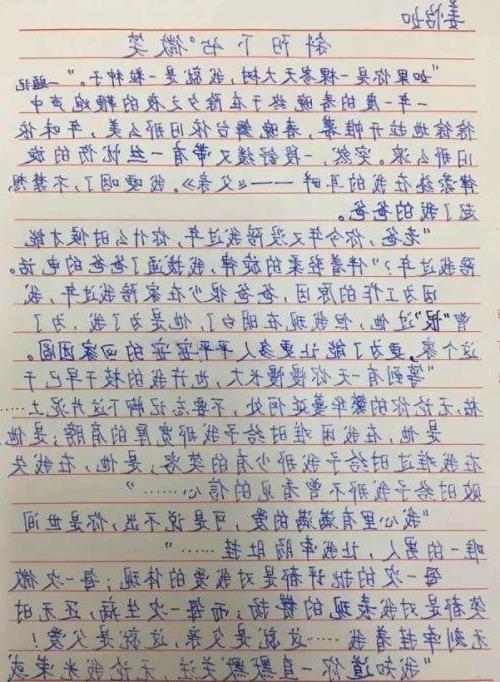 姜怡如
斜阳下的微笑
“如果你是一棵参天大树，我就是一粒种子。”—题记
一年一度的春晚终于在除夕之夜的鞭炮声中
徐徐地拉开帷幕，春晚舞台依旧那么美，年味依
旧那么浓。突然，一段舒缓又带有一丝忧伤的旋
律萦绕在我的耳畔——《父亲》。我哽咽了，不禁想
起了我的爸爸。
“老爸，你今年又没陪我过年，你什么时候才能
陪我过年？”伴着轻柔的旋律，我拨通了爸爸的电话。
因为工作的原因，爸爸很少在家陪我过年，我
曾“恨”过他，但我现在明白了，他是为了我，为了
这个家，更为了能让更多人平平安安的回家团圆。
“等到有一天你慢慢长大，也许我的枝干早已干
枯，无论你的繁华蔓延何处，不要忘记脚下这片泥土……
是他，在我困难时给予我那宽厚的肩膀；是他，
在我难过时给予我那少有的笑容；是他，在我失
败时给予我那不曾看见的信心……”
“我心里有满满的爱，可是说不出，你是世间
唯一的男人，让我牵肠肚挂……”
每一次的批评都是对我爱的体现；每一次微
笑都是对我表现的赞扬；而每一次生病，还无时
无刻牵挂着我……这就是父亲，这就是父爱！
“我知道你一直默默关注，无论我未来或